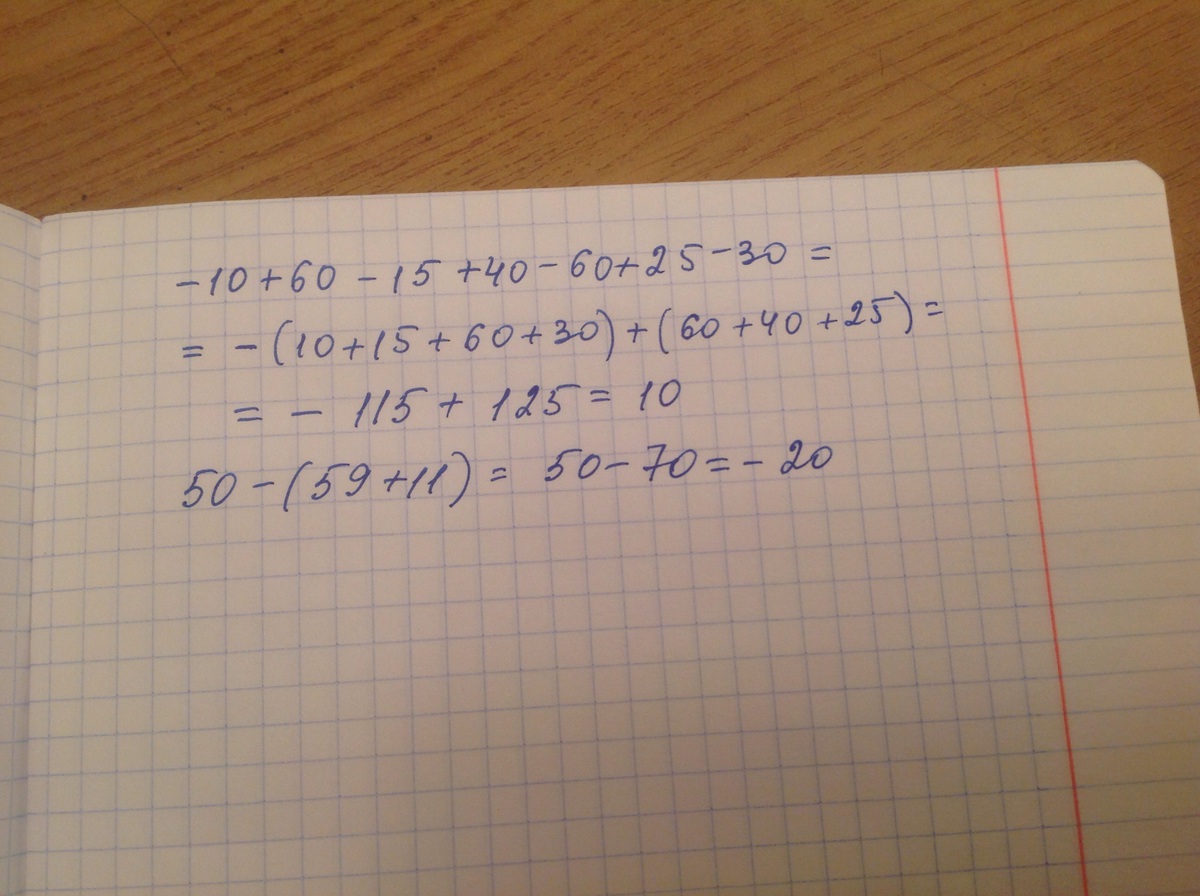 -10+60-15+40-60+25-30=
= -(10+15+60+30)+(60+40+25)=
= - 115 + 125 = 10
50-(59+11)= 50-70=-20